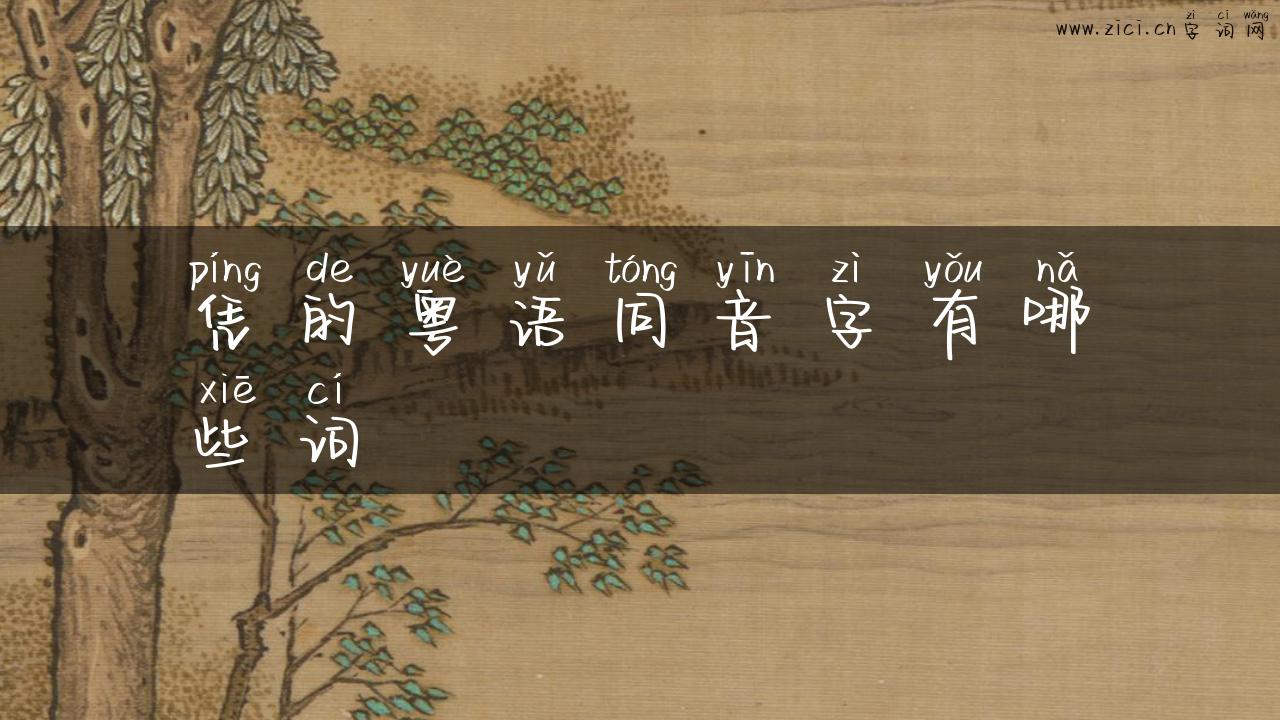 zì cí wǎng
www.zici.cn 字词网
píng de yuè yǔ tóng yīn zì yǒu nǎ
凭的粤语同音字有哪
xiē cí
些词